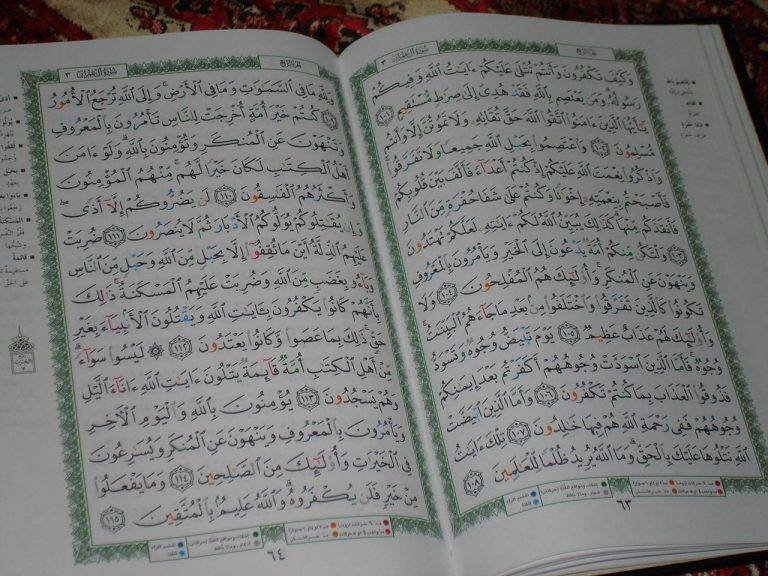 سورة آل عمران ٣
الجزء الرابع
وَكَيْفَ تَكْفُرُونَ وَأَنتُمْ تُتْلَىٰ عَلَيْكُمْ ءَايَٰتُ ٱللَّهِ وَفِيكُمْ
رَسُولُهُۥ وَمَن يَعْتَصِم بِٱللَّهِ فَقَدْ هُدِىَ إِلَىٰ صِرَٰطٍ مُّسْتَقِيمٍ
١٠١ يَٰٓأَيُّهَا ٱلَّذِينَ ءَامَنُوا۟ ٱتَّقُوا۟ ٱللَّهَ حَقَّ تُقَاتِهِۦ وَلَا تَمُوتُنَّ إِلَّا وَأَنتُم
مُّسْلِمُونَ ١٠٢ وَٱعْتَصِمُوا۟ بِحَبْلِ ٱللَّهِ جَمِيعًا وَلَا تَفَرَّقُوا۟
وَٱذْكُرُوا۟ نِعْمَتَ ٱللَّهِ عَلَيْكُمْ إِذْ كُنتُمْ أَعْدَآءً فَأَلَّفَ بَيْنَ قُلُوبِكُمْ
فَأَصْبَحْتُم بِنِعْمَتِهِۦٓ إِخْوَٰنًا وَكُنتُمْ عَلَىٰ شَفَا حُفْرَةٍ مِّنَ ٱلنَّارِ
فَأَنقَذَكُم مِّنْهَا كَذَٰلِكَ يُبَيِّنُ ٱللَّهُ لَكُمْ ءَايَٰتِهِۦ لَعَلَّكُمْ تَهْتَدُونَ
١٠٣ وَلْتَكُن مِّنكُمْ أُمَّةٌ يَدْعُونَ إِلَى ٱلْخَيْرِ وَيَأْمُرُونَ بِٱلْمَعْرُوفِ
وَيَنْهَوْنَ عَنِ ٱلْمُنكَرِ وَأُو۟لَٰٓئِكَ هُمُ ٱلْمُفْلِحُونَ ١٠٤ وَلَا
تَكُونُوا۟ كَٱلَّذِينَ تَفَرَّقُوا۟ وَٱخْتَلَفُوا۟ مِنۢ بَعْدِ مَا جَآءَهُمُ ٱلْبَيِّنَٰتُ
وَأُو۟لَٰٓئِكَ لَهُمْ عَذَابٌ عَظِيمٌ ١٠٥ يَوْمَ تَبْيَضُّ وُجُوهٌ وَتَسْوَدُّ
وُجُوهٌ فَأَمَّا ٱلَّذِينَ ٱسْوَدَّتْ وُجُوهُهُمْ أَكَفَرْتُم بَعْدَ إِيمَٰنِكُمْ
فَذُوقُوا۟ ٱلْعَذَابَ بِمَا كُنتُمْ تَكْفُرُونَ ١٠٦ وَأَمَّا ٱلَّذِينَ ٱبْيَضَّتْ
وُجُوهُهُمْ فَفِى رَحْمَةِ ٱللَّهِ هُمْ فِيهَا خَٰلِدُونَ ١٠٧ تِلْكَ ءَايَٰتُ
ٱللَّهِ نَتْلُوهَا عَلَيْكَ بِٱلْحَقِّ وَمَا ٱللَّهُ يُرِيدُ ظُلْمًا لِّلْعَٰلَمِينَ ١٠٨
٦٣
سورة آل عمران ٣
الجزء الرابع
وَلِلَّهِ مَا فِى ٱلسَّمَٰوَٰتِ وَمَا فِى ٱلْأَرْضِ وَإِلَى ٱللَّهِ تُرْجَعُ ٱلْأُمُورُ
١٠٩ كُنتُمْ خَيْرَ أُمَّةٍ أُخْرِجَتْ لِلنَّاسِ تَأْمُرُونَ بِٱلْمَعْرُوفِ
وَتَنْهَوْنَ عَنِ ٱلْمُنكَرِ وَتُؤْمِنُونَ بِٱللَّهِ وَلَوْ ءَامَنَ
أَهْلُ ٱلْكِتَٰبِ لَكَانَ خَيْرًا لَّهُم مِّنْهُمُ ٱلْمُؤْمِنُونَ
وَأَكْثَرُهُمُ ٱلْفَٰسِقُونَ ١١٠ لَن يَضُرُّوكُمْ إِلَّآ أَذًى
وَإِن يُقَٰتِلُوكُمْ يُوَلُّوكُمُ ٱلْأَدْبَارَ ثُمَّ لَا يُنصَرُونَ ١١١ ضُرِبَتْ
عَلَيْهِمُ ٱلذِّلَّةُ أَيْنَ مَا ثُقِفُوٓا۟ إِلَّا بِحَبْلٍ مِّنَ ٱللَّهِ وَحَبْلٍ مِّنَ ٱلنَّاسِ
وَبَآءُو بِغَضَبٍ مِّنَ ٱللَّهِ وَضُرِبَتْ عَلَيْهِمُ ٱلْمَسْكَنَةُ ذَٰلِكَ
بِأَنَّهُمْ كَانُوا۟ يَكْفُرُونَ بِـَٔايَٰتِ ٱللَّهِ وَيَقْتُلُونَ ٱلْأَنۢبِيَآءَ بِغَيْرِ
حَقٍّ ذَٰلِكَ بِمَا عَصَوا۟ وَّكَانُوا۟ يَعْتَدُونَ ١١٢ ۞ لَيْسُوا۟ سَوَآءً
مِّنْ أَهْلِ ٱلْكِتَٰبِ أُمَّةٌ قَآئِمَةٌ يَتْلُونَ ءَايَٰتِ ٱللَّهِ ءَانَآءَ ٱلَّيْلِ
وَهُمْ يَسْجُدُونَ ١١٣ يُؤْمِنُونَ بِٱللَّهِ وَٱلْيَوْمِ ٱلْءَاخِرِ
وَيَأْمُرُونَ بِٱلْمَعْرُوفِ وَيَنْهَوْنَ عَنِ ٱلْمُنكَرِ وَيُسَٰرِعُونَ
فِى ٱلْخَيْرَٰتِ وَأُو۟لَٰٓئِكَ مِنَ ٱلصَّٰلِحِينَ ١١٤ وَمَا يَفْعَلُوا۟
مِنْ خَيْرٍ فَلَن يُكْفَرُوهُ وَٱللَّهُ عَلِيمٌۢ بِٱلْمُتَّقِينَ ١١٥
٦٤